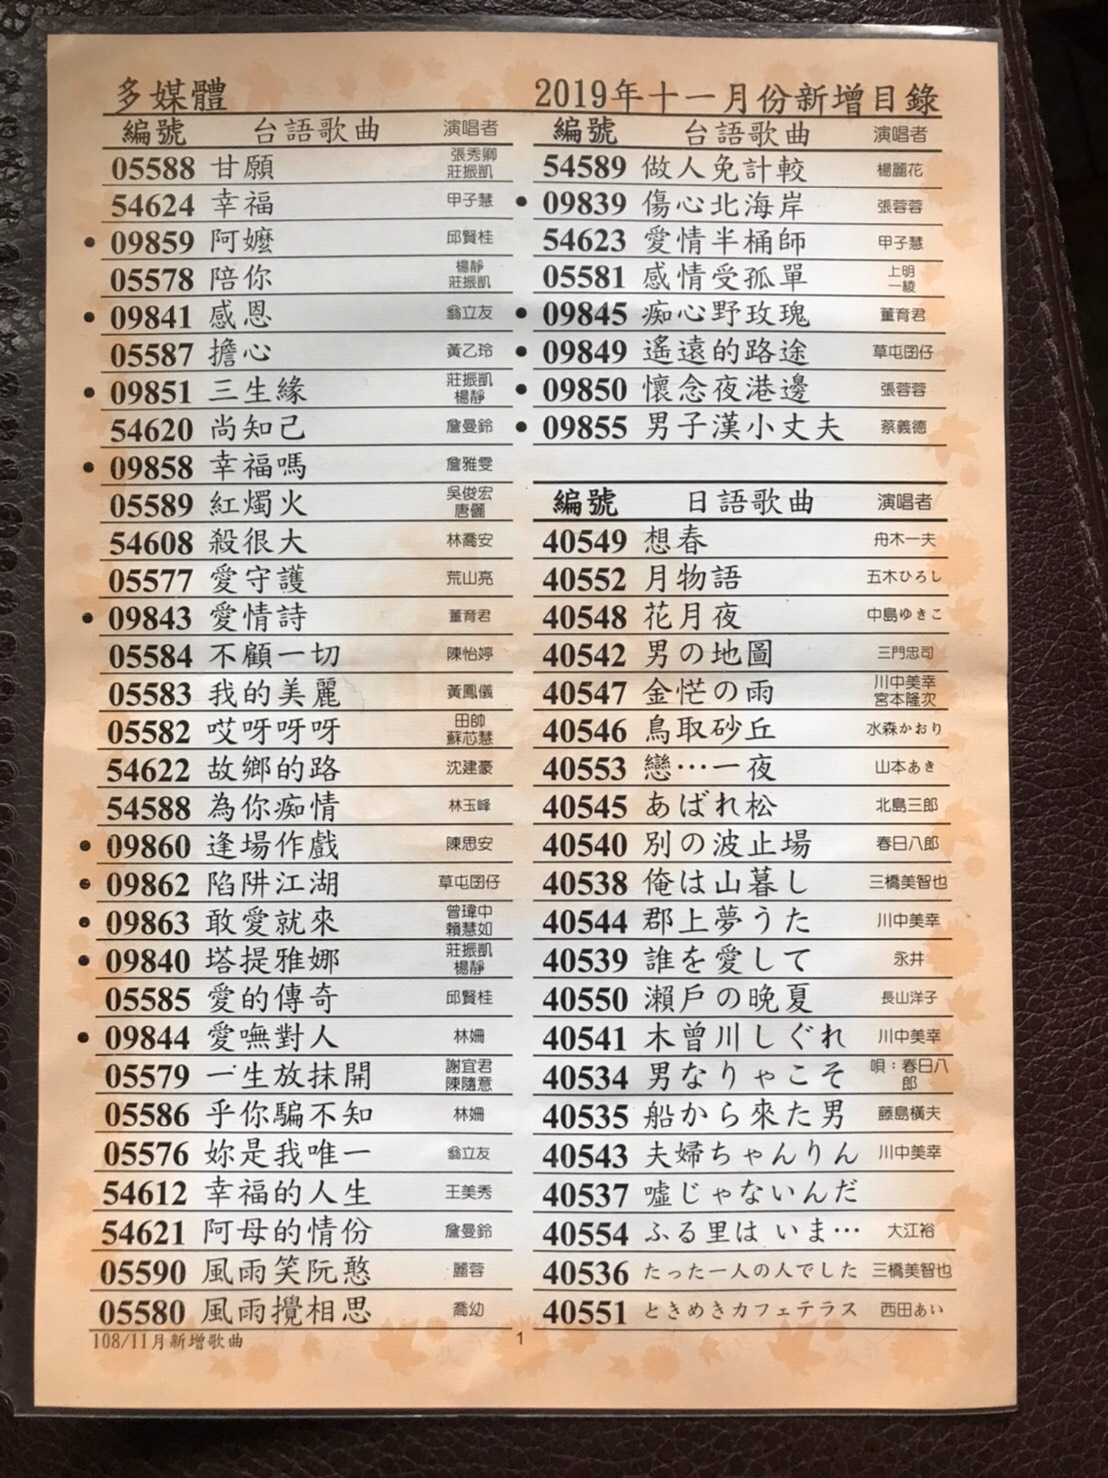 多媒體
2019年十一月份新增目錄
編號 台語歌曲 演唱者
05588 甘願 張秀卿 莊振凱
54624 幸福 甲子慧
• 09859 阿嬤 邱賢桂
05578 陪你 楊靜 莊振凱
• 09841 感恩 翁立友
05587 擔心 黃乙玲
• 09851 三生緣 莊振凱 楊靜
54620 尚知己 詹曼鈴
• 09858 幸福嗎 詹雅雯
05589 紅燭火 吳俊宏 唐儷
54608 殺很大 林喬安
05577 愛守護 荒山亮
• 09843 愛情詩 董育君
05584 不顧一切 陳怡婷
05583 我的美麗 黃鳳儀
05582 哎呀呀呀 田帥 蘇芯慧
54622 故鄉的路 沈建豪
54588 為你痴情 林玉峰
• 09860 逢場作戲 陳思安
• 09862 陷阱江湖 草屯囝仔
• 09863 敢愛就來 曾瑋中 賴慧如
• 09840 塔提雅娜 莊振凱 楊靜
05585 愛的傳奇 邱賢桂
• 09844 愛嘸對人 林姍
05579 一生放抹開 謝宜君 陳隨意
05586 乎你騙不知 林姍
05576 妳是我唯一 翁立友
54612 幸福的人生 王美秀
54621 阿母的情份 詹曼鈴
05590 風雨笑阮憨 麗蓉
05580 風雨攪相思 喬幼
108/11月新增歌曲
編號 台語歌曲 演唱者
54589 做人免計較 楊麗花
• 09839 傷心北海岸 張蓉蓉
54623 愛情半桶師 甲子慧
05581 感情受孤單 上明 一綾
• 09845 痴心野玫瑰 董育君
• 09849 遙遠的路途 草屯囝仔
• 09850 懷念夜港邊 張蓉蓉
• 09855 男子漢小丈夫 蔡義德
編號 日語歌曲 演唱者
40549 想春 舟木一夫
40552 月物語 五木ひろし
40548 花月夜 中島ゆきこ
40542 男の地圖 三門忠司
40547 金恾の雨 川中美幸 宮本隆次
40546 鳥取砂丘 水森かおり
40553 戀…一夜 山本あき
40545 あばれ松 北島三郎
40540 別の波止場 春日八郎
40538 俺は山暮し 三橋美智也
40544 郡上夢うた 川中美幸
40539 誰を愛して 永井
40550 瀨戶の晚夏 長山洋子
40541 木曾川しぐれ 川中美幸
40534 男なりゃこそ 唄：春日八郎
40535 船から來た男 藤島橫夫
40543 夫婦ちゃんりん 川中美幸
40537 噓じゃないんだ
40554 ふる里は いま… 大江裕
40536 たった一人の人でした 三橋美智也
40551 ときめきカフェテラス 西田あい
1